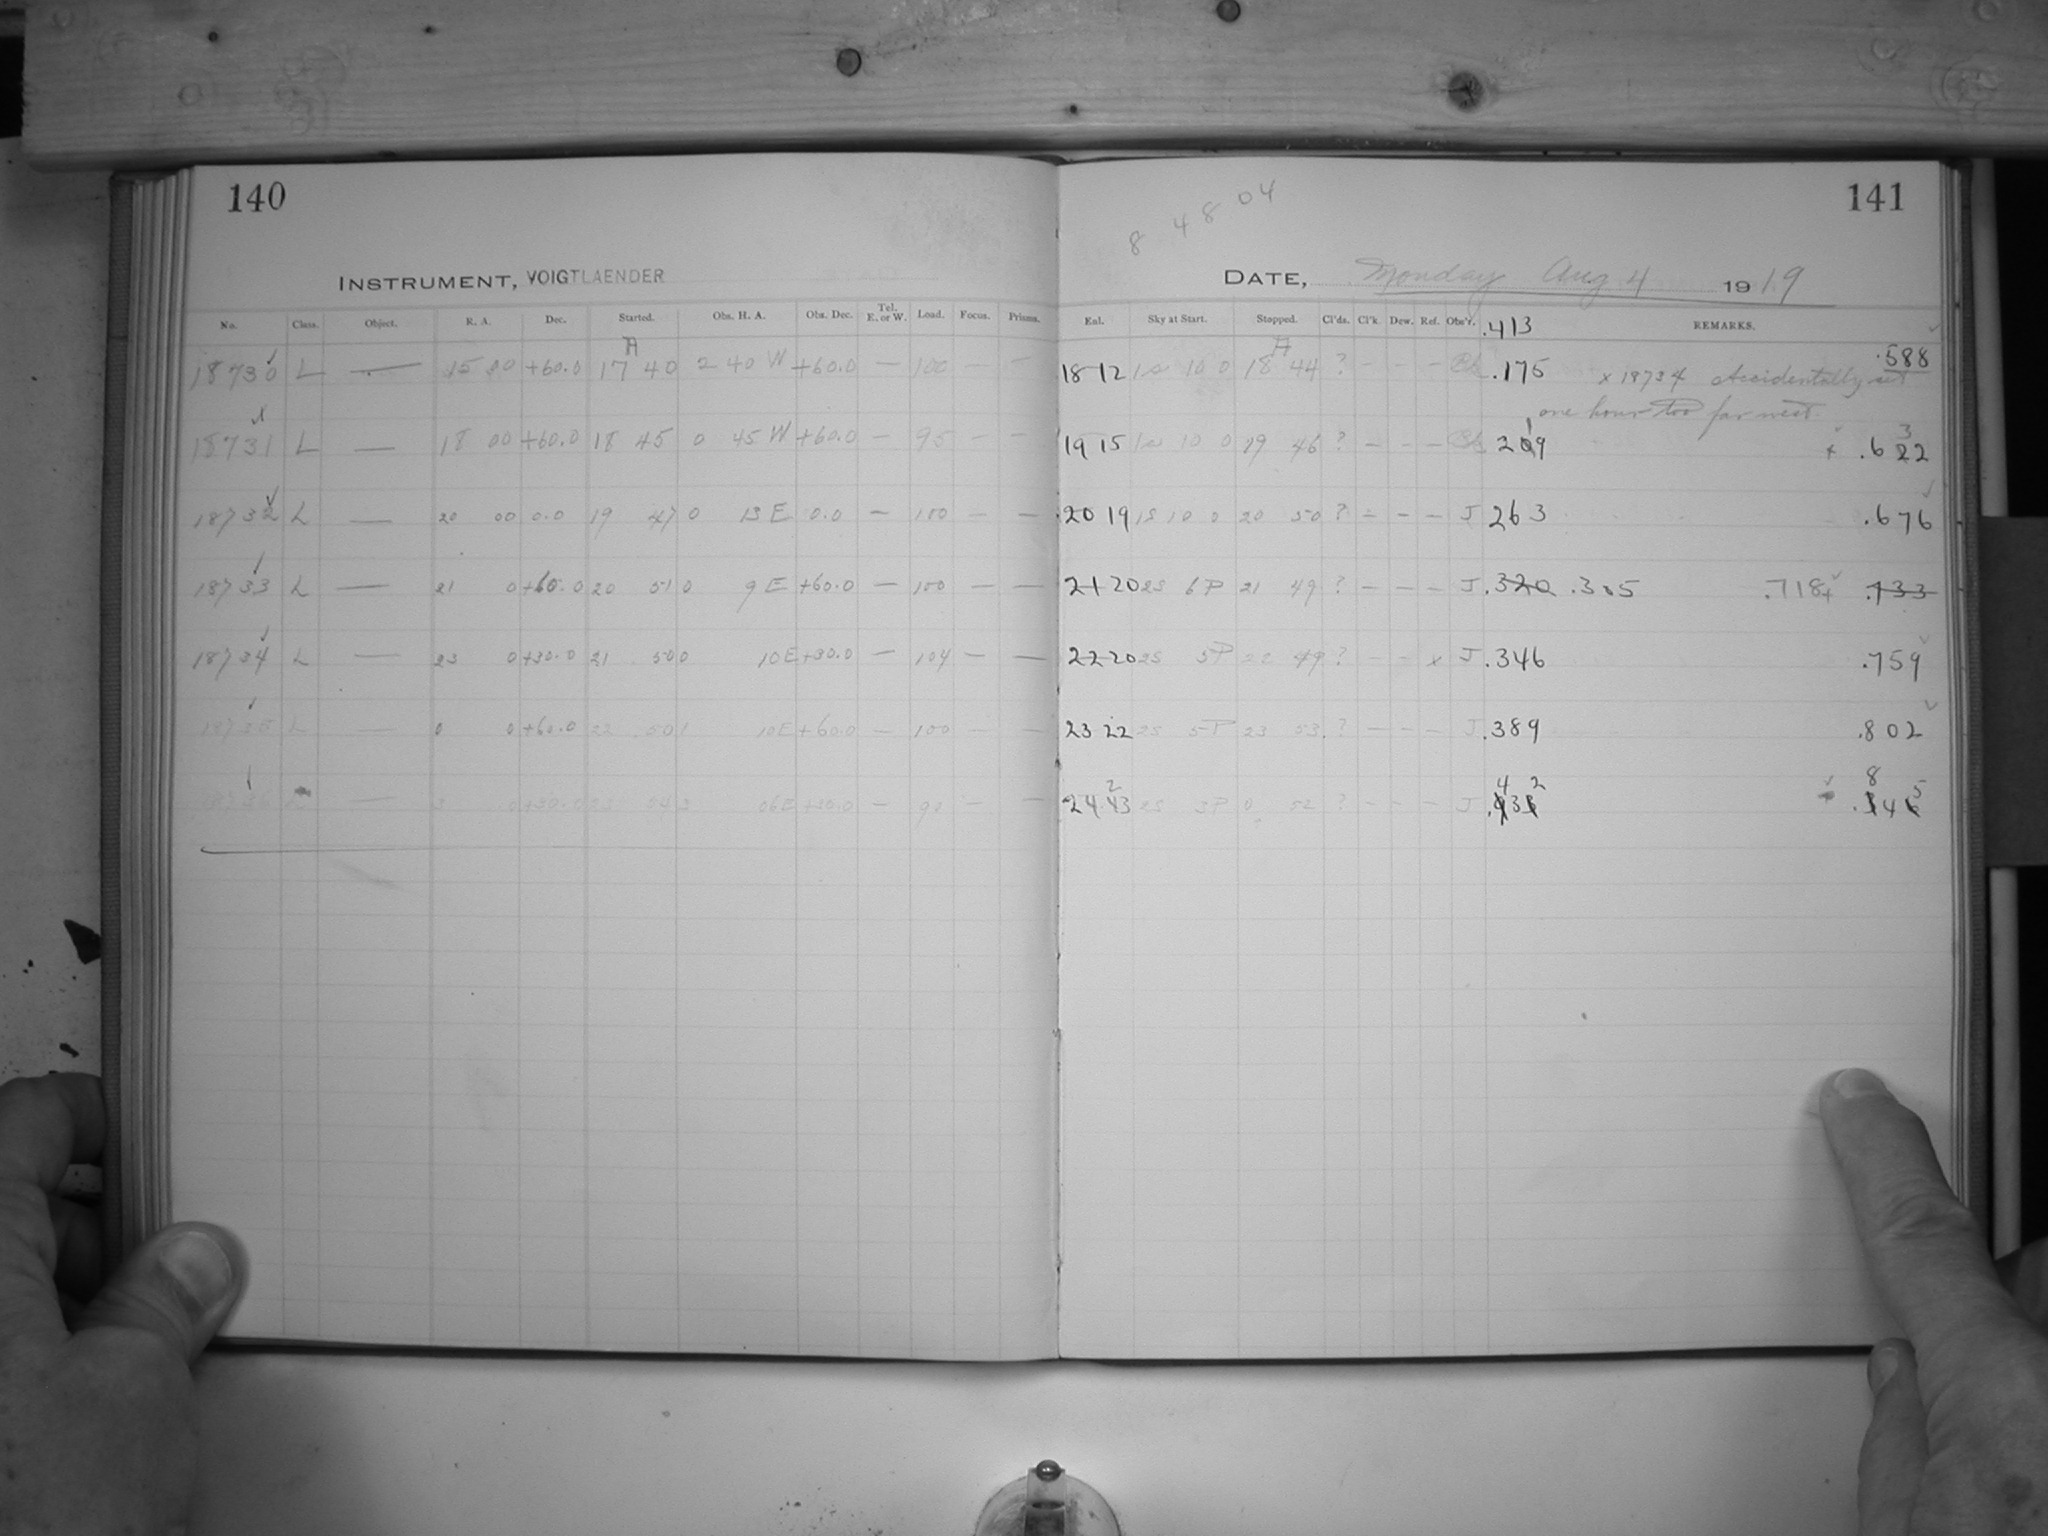 140
INSTRUMENT, VOIGTLAENDER
No. Class. Object. R. A. Dec. Started. Obs. H. A. Obs. Dec. Tel. E. or W. Load. Focus. Prisms.
18730 L — 15 00 +60.0 17 40 2 40 W +60.0 — 100 — —
18731 L — 18 00 +60.0 18 45 0 45 W +60.0 — 95 — —
18732 L — 20 00 0.0 19 47 0 13 E 0.0 — 100 — —
18733 L — 21 0 +60.0 20 51 0 9 E +60.0 — 100 — —
18734 L — 23 0 +30.0 21 50 0 10 E +30.0 — 104 — —
18735 L — 0 0 +60.0 22 50 1 10 E +60.0 — 100 — —
18736 L — 3 0 +30.0 23 54 3 06 E +30.0 — 90 — —
141
8 4 8 04
DATE, Monday Aug 4 1919
Exl. Sky at Start. Stopped. Cl'ds. Cl'k. Dew. Ref. Obs'r. .413 REMARKS.
18 12 1s 10 0 18 44 ? — — — .175 x 18734 Accidentally set .588
one hour too far west.
19 15 1s 10 0 19 46 ? — — — 219 x .632
20 19 1s 10 0 20 50 ? — — — J 263 .676
21 20 2s 6P 21 49 ? — — — J .320 .305 .718 .733
22 20 2s 5P 22 49 ? — — x J .346 .759
23 22 2s 5P 23 53 ? — — — J .389 .802
24 23 2s 3P 0 52 ? — — — J .432 .845